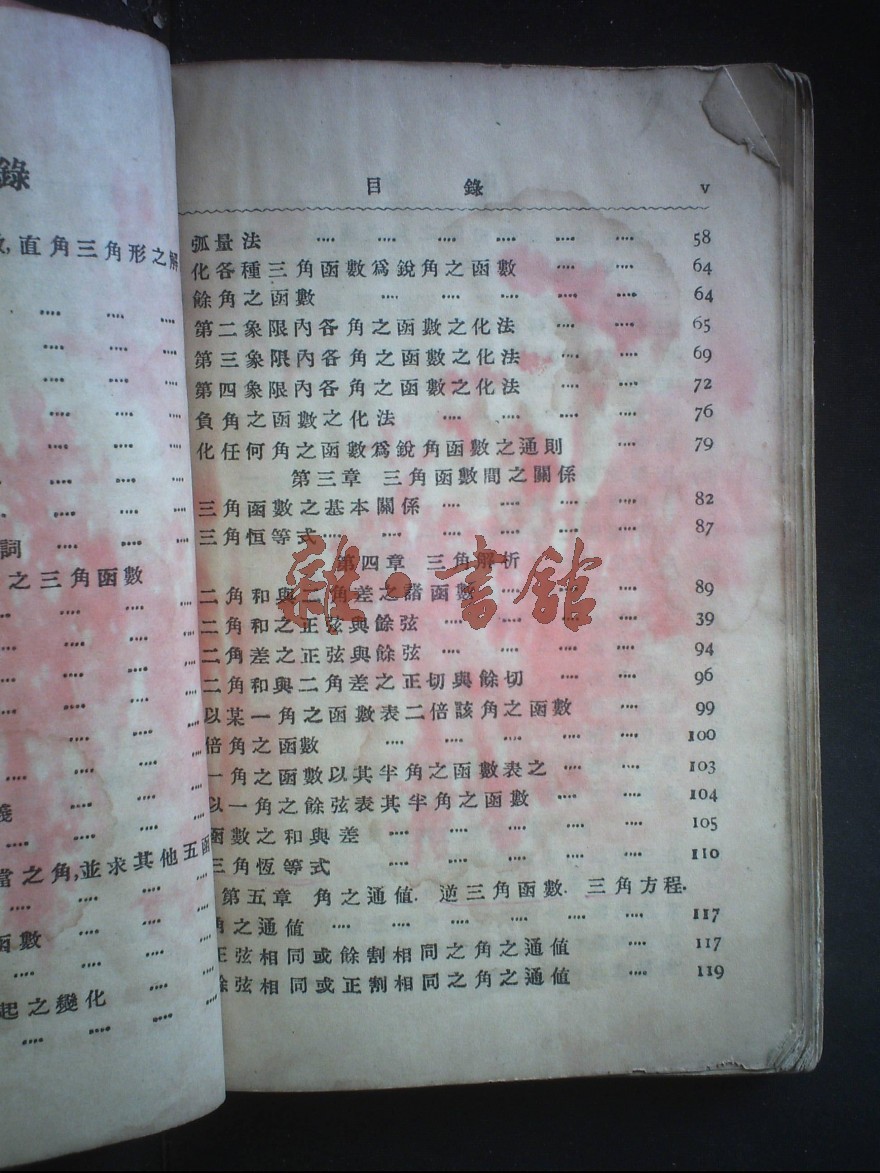 錄
直角三角形之解
詞
之三角函數
當之角,並求其他五函
函數
起之變化
目 錄 v
弧量法 .... .... .... .... .... .... 58
化各種三角函數爲銳角之函數 .... .... 64
餘角之函數 .... .... .... .... .... 64
第二象限內各角之函數之化法 .... .... 65
第三象限內各角之函數之化法 .... .... 69
第四象限內各角之函數之化法 .... .... 72
負角之函數之化法 .... .... .... .... 76
化任何角之函數爲銳角函數之通則 .... 79
第三章 三角函數間之關係
三角函數之基本關係 .... .... .... .... 82
三角恒等式 .... .... .... .... .... .... 87
第四章 三角解析
二角和與二角差之諸函數 .... .... .... 89
二角和之正弦與餘弦 .... .... .... .... 39
二角差之正弦與餘弦 .... .... .... .... 94
二角和與二角差之正切與餘切 .... .... 96
以某一角之函數表二倍該角之函數 .... 99
倍角之函數 .... .... .... .... .... 100
一角之函數以其半角之函數表之 .... .... 103
以一角之餘弦表其半角之函數 .... .... 104
函數之和與差 .... .... .... .... .... 105
三角恆等式 .... .... .... .... .... 110
第五章 角之通値. 逆三角函數. 三角方程.
角之通値 .... .... .... .... .... .... 117
正弦相同或餘割相同之角之通値 .... 117
餘弦相同或正割相同之角之通値 .... 119
雜·書館